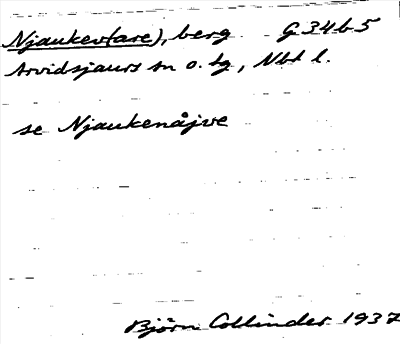 Njaukev(are), berg G 34 b 5
Arvidsjaurs sn o. tg, Nbt l.
se Njaukenåjve
Björn Collinder 1937